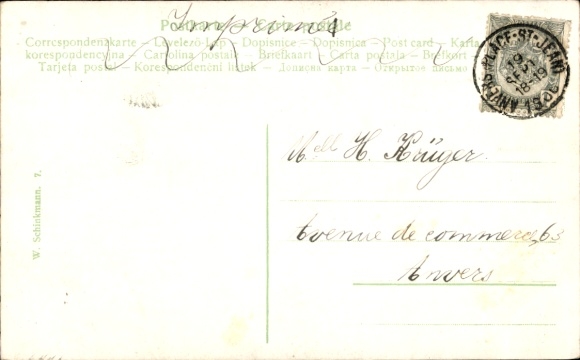 Imprimé
Postkarte
Correspondenzkarte — Levelező-Lap — Dopisnice — Dopisnica — Post card — Karta
korespondencyjna — Cartolina postale — Briefkaart — Carta postala — Brefkort
Tarjeta postal — Korespondenční lístek — Дописна карта — Открытое письмо
ANVERS PLACE-ST-JEAN
18-19
Mell H. Krüger
Avenue de commerce, 63
Anvers
W. Schinkmann. 7.